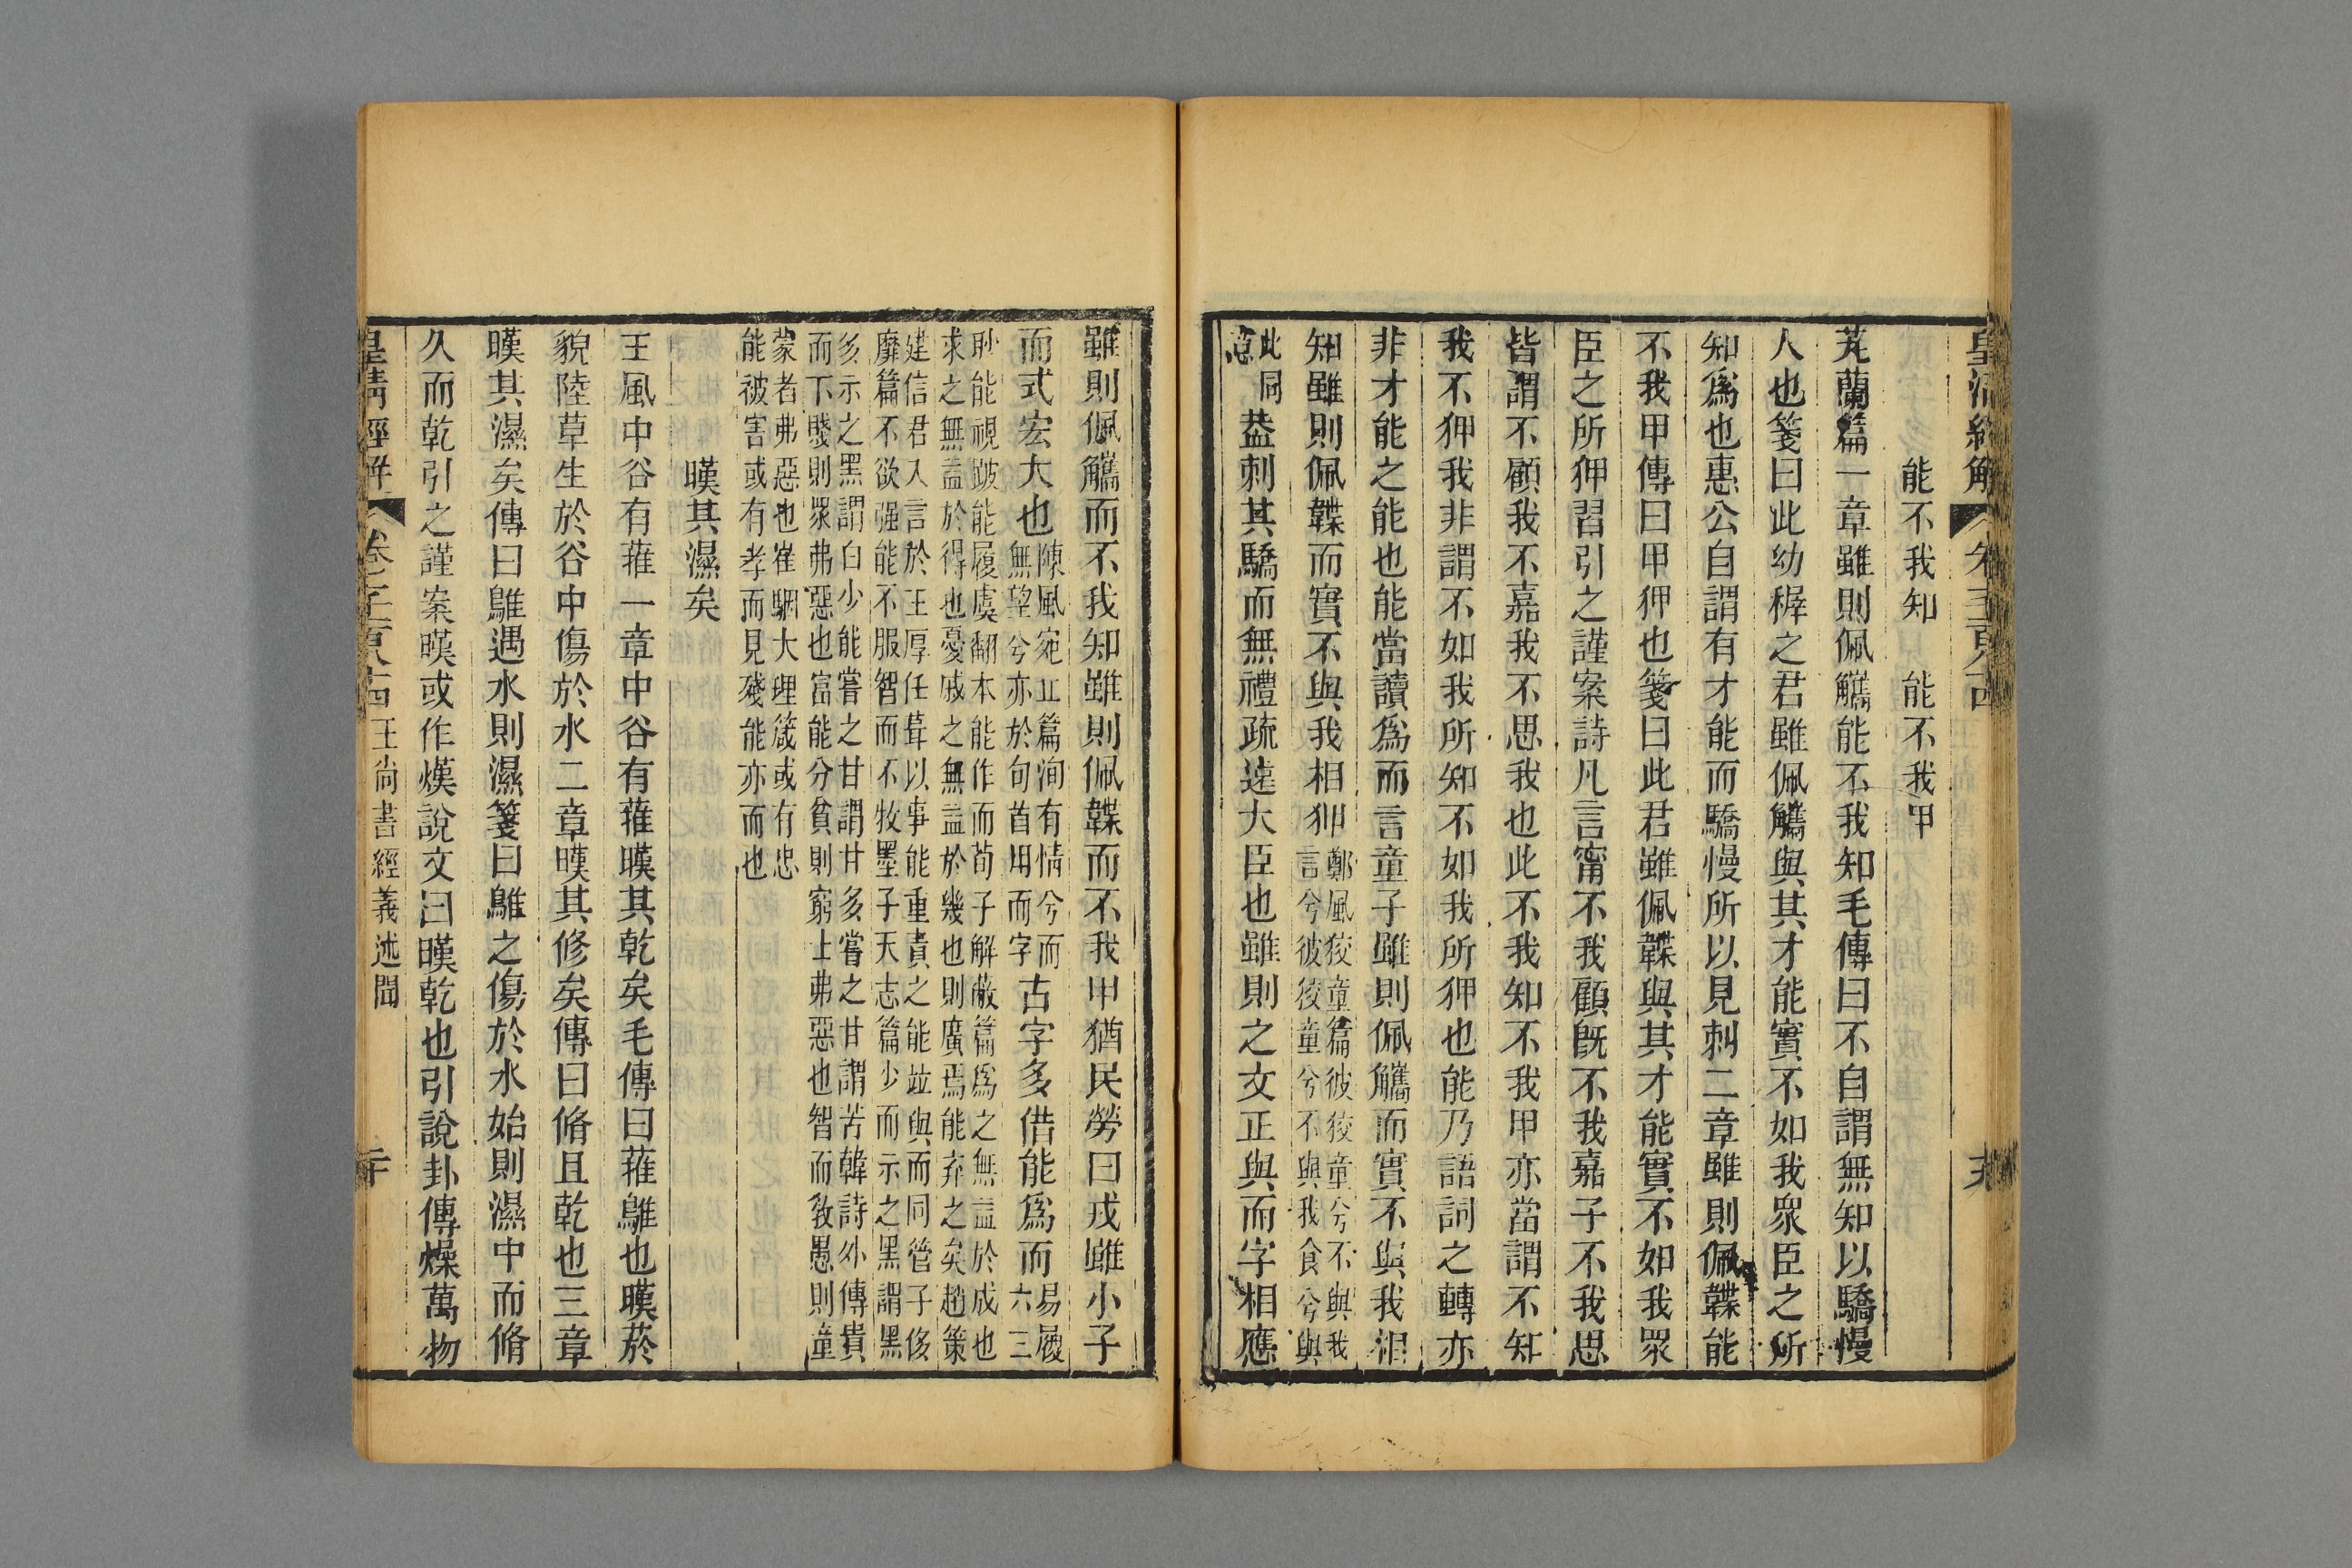 皇清經解 卷千二百八十四
能不我知 能不我甲
芄蘭篇一章雖則佩觿能不我知毛傳曰不自謂無知以驕慢
人也箋曰此幼穉之君雖佩觿與其才能實不如我眾臣之所
知爲也惠公自謂有才能而驕慢所以見刺二章雖則佩韘能
不我甲傳曰甲狎也箋曰此君雖佩韘與其才能實不如我眾
臣之所狎習引之謹案詩凡言甯不我顧旣不我嘉子不我思
皆謂不顧我不嘉我不思我也此不我知不我甲亦當謂不知
我不狎我非謂不如我所知不如我所狎也能乃語詞之轉亦
非才能之能也能當讀爲而言童子雖則佩觿而實不與我相
知雖則佩韘而實不與我相狎鄭風狡童篇彼狡童兮不與我
言兮彼狡童兮不與我食兮與
此同
意
葢刺其驕而無禮疏遠大臣也雖則之文正與而字相應
雖則佩觿而不我知雖則佩韘而不我甲猶民勞曰戎雖小子
而式宏大也陳風宛丘篇洵有情兮而
無望兮亦於句首用而字
古字多借能爲而易履
六三
眇能視跛能履虞翻本能作而荀子解蔽篇爲之無益於成也
求之無益於得也憂戚之無益於幾也則廣焉能弃之矣趙策
建信君入言於王厚任葺以事能重責之能竝與而同管子侈
靡篇不欲强能不服智而不牧墨子天志篇少而示之黑謂黑
多示之黑謂白少能嘗之甘謂甘多嘗之甘謂苦韓詩外傳貴
而下賤則眾弗惡也富能分貧則窮士弗惡也智而敎愚則童
蒙者弗惡也崔駰大理箴或有忠
能被害或有孝而見殘能亦而也
暵其濕矣
王風中谷有蓷一章中谷有蓷暵其乾矣毛傳曰蓷鵻也暵菸
貌陸草生於谷中傷於水二章暵其修矣傳曰脩且乾也三章
暵其濕矣傳曰鵻遇水則濕箋曰鵻之傷於水始則濕中而脩
久而乾引之謹案暵或作熯說文曰暵乾也引說卦傳燥萬物
皇清經解 王尚書經義述聞 二十